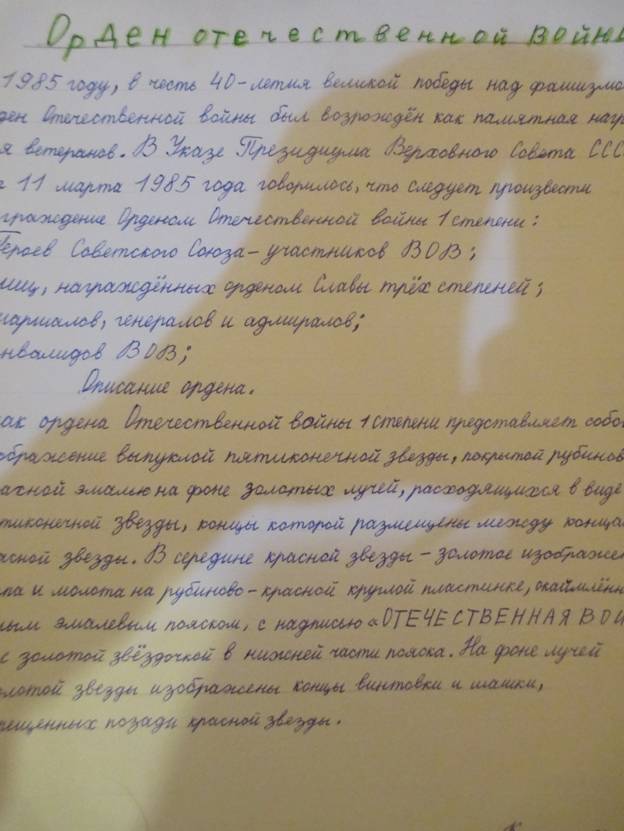 Орден отечественной войны
1985 году, в честь 40-летия великой победы над фашизмо
ден Отечественной войны был возрождён как памятная нагр
я ветеранов. В Указе Президиума Верховного Совета ССС
т 11 марта 1985 года говорилось, что следует произвести
аграждение Орденом Отечественной войны 1 степени:
Героев Советского Союза - участников ВОВ;
лиц, награждённых орденом Славы трёх степеней;
маршалов, генералов и адмиралов;
нвалидов ВОВ;
Описание ордена.
нак ордена Отечественной войны 1 степени представляет собо
ображение выпуклой пятиконечной звезды, покрытой рубинов
расной эмалью на фоне золотых лучей, расходящихся в виде
тиконечной звезды, концы которой размещены между конца
расной звезды. В середине красной звезды - золотое изображен
рпа и молота на рубиново-красной круглой пластинке, окаймлённ
лым эмалевым пояском, с надписью «ОТЕЧЕСТВЕННАЯ ВОЙ
с золотой звёздочкой в нижней части пояска. На фоне лучей
олотой звезды изображены концы винтовки и шашки,
рещенных позади красной звезды.